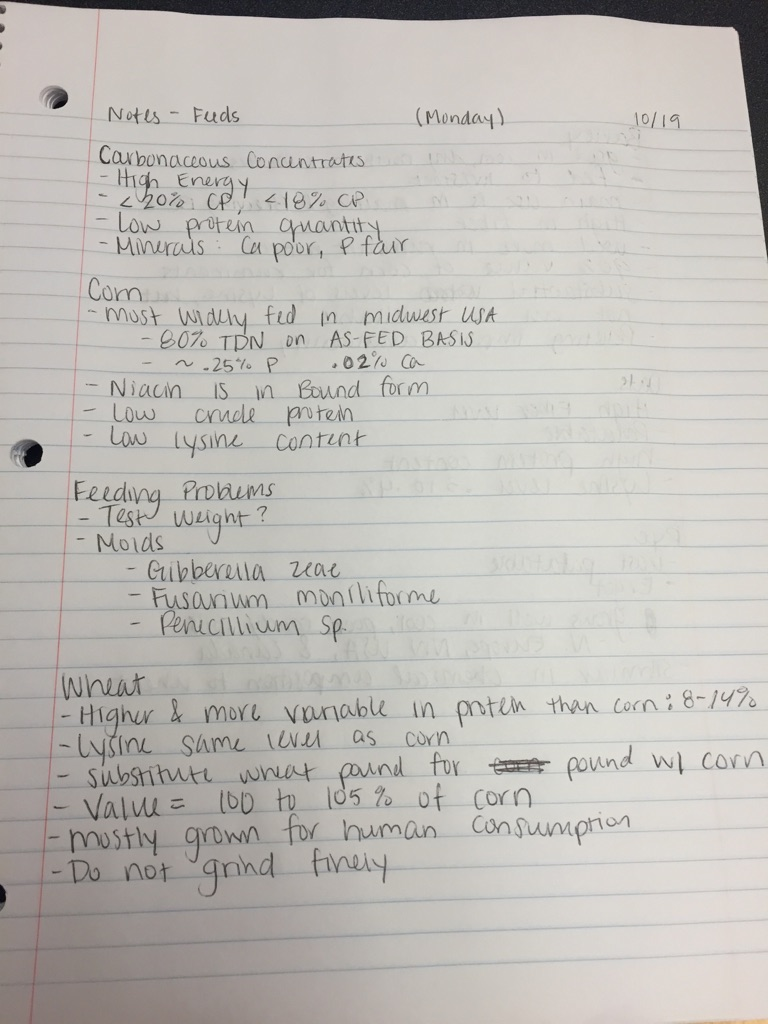 Notes - Feeds (Monday) 10/19
Carbonaceous Concentrates
- High Energy
- < 20% CP, < 18% CP
- Low protein quantity
- Minerals: Ca poor, P fair
Corn
- most widely fed in midwest USA
- 80% TDN on AS-FED BASIS
- ~ .25% P .02% Ca
- Niacin is in Bound form
- Low crude protein
- Low lysine content
Feeding Problems
- Test Weight?
- Molds
- Gibberella zeae
- Fusarium moniliforme
- Penicillium Sp.
Wheat
- Higher & more variable in protein than corn: 8-14%
- Lysine same level as corn
- substitute wheat pound for pound w/ corn
- Value = 100 to 105% of corn
- mostly grown for human consumption
- Do not grind finely